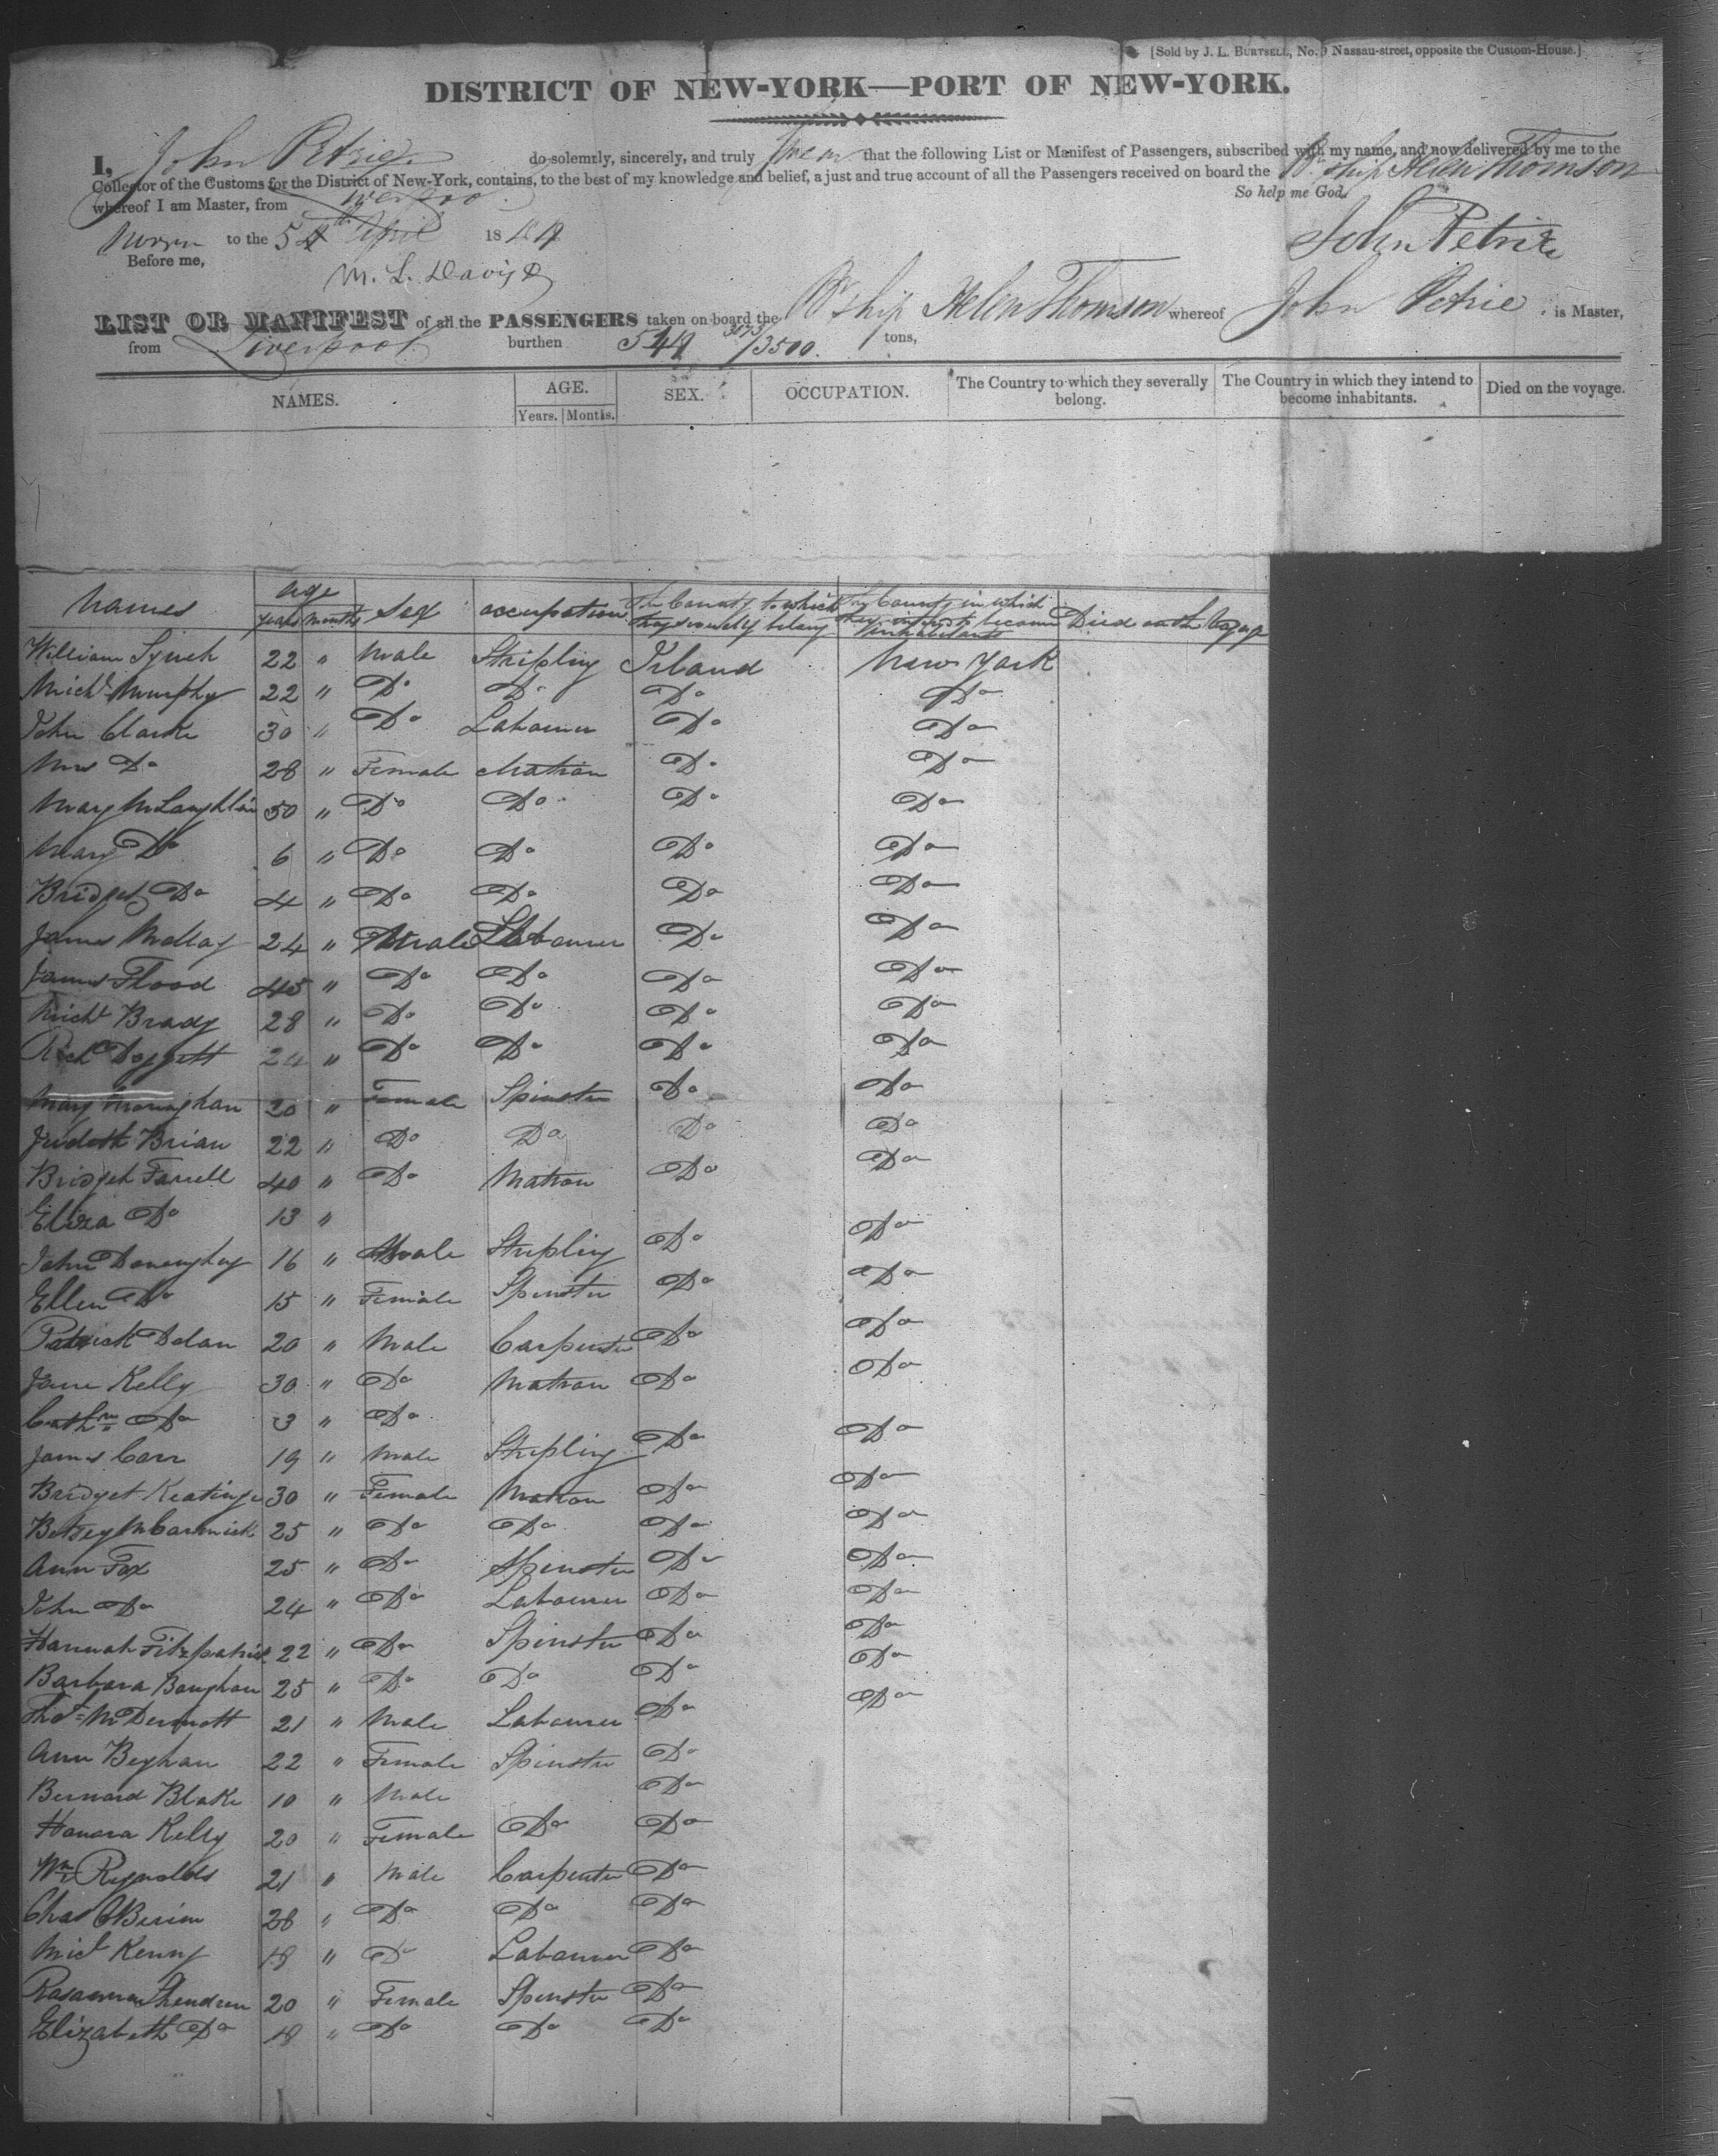 [Sold by J. L. BURTSELL, No. 9 Nassau-street, opposite the Custom-House.]
DISTRICT OF NEW-YORK—PORT OF NEW-YORK.
I, John Petrie do solemnly, sincerely, and truly swear that the following List or Manifest of Passengers, subscribed with my name, and now delivered by me to the
Collector of the Customs for the District of New-York, contains, to the best of my knowledge and belief, a just and true account of all the Passengers received on board the Br Ship Helen Thomson
whereof I am Master, from Liverpool So help me God.
to the 18 44 John Petrie
Before me,
M. L. Davis
LIST OR MANIFEST of all the PASSENGERS taken on board the Br Ship Helen Thomson whereof John Petrie is Master,
from Liverpool burthen tons,
NAMES. AGE. SEX. OCCUPATION. The Country to which they severally belong. The Country in which they intend to become inhabitants. Died on the voyage.
Years. Months.
Names Age Sex occupation The County to which they severely belong The County in which they intends become inhabitants Died on the Voyage
Years Months
William Lynch 22 " Male Stripling Irland New York
Michl Murphy 22 " Do Do Do Do
John Clarke 30 " Do Labourer Do Do
Mrs Do 28 " Female Matron Do Do
Mary McLaughlin 50 " Do Do Do Do
Mary Do 6 " Do Do Do Do
Bridget Do 4 " Do Do Do Do
James 24 " Male Labourer Do Do
James Flood 45 " Do Do Do Do
Michl Brady 28 " Do Do Do Do
Richd Doggett 24 " Do Do Do Do
Mary Monaghan 20 " Female Spinster Do Do
Judeth Brian 22 " Do Do Do Do
Bridget Farrell 40 " Do Matron Do Do
Eliza Do 13 "
John Donoughey 16 " Male Stripling Do Do
Ellen Do 15 " Female Spinster Do Do
Patrick Dolan 20 " Male Carpenter Do Do
Jane Kelly 30 " Do Matron Do Do
Cathne Do 3 " Do
James Carr 19 " Male Stripling Do Do
Bridget Keatinge 30 " Female Matron Do Do
Betsey McCormick 25 " Do Do Do Do
Ann Fox 25 " Do Spinster Do Do
John Do 24 " Do Labourer Do Do
Hannah Fitzpatrick 22 " Do Spinster Do Do
Barbara Baughan 25 " Do Do Do Do
Thos McDermott 21 " Male Labourer Do Do
Ann Beghan 22 " Female Spinster Do
Bernard Blake 10 " Male Do
Honora Kelly 20 " Female Do Do
Wm Reynolds 21 " Male Carpenter Do
Chas 28 " Do Do Do
Micl Kenny 18 " Do Labourer Do
Rosanna 20 " Female Spinster Do
Elizabeth Do 18 " Do Do Do